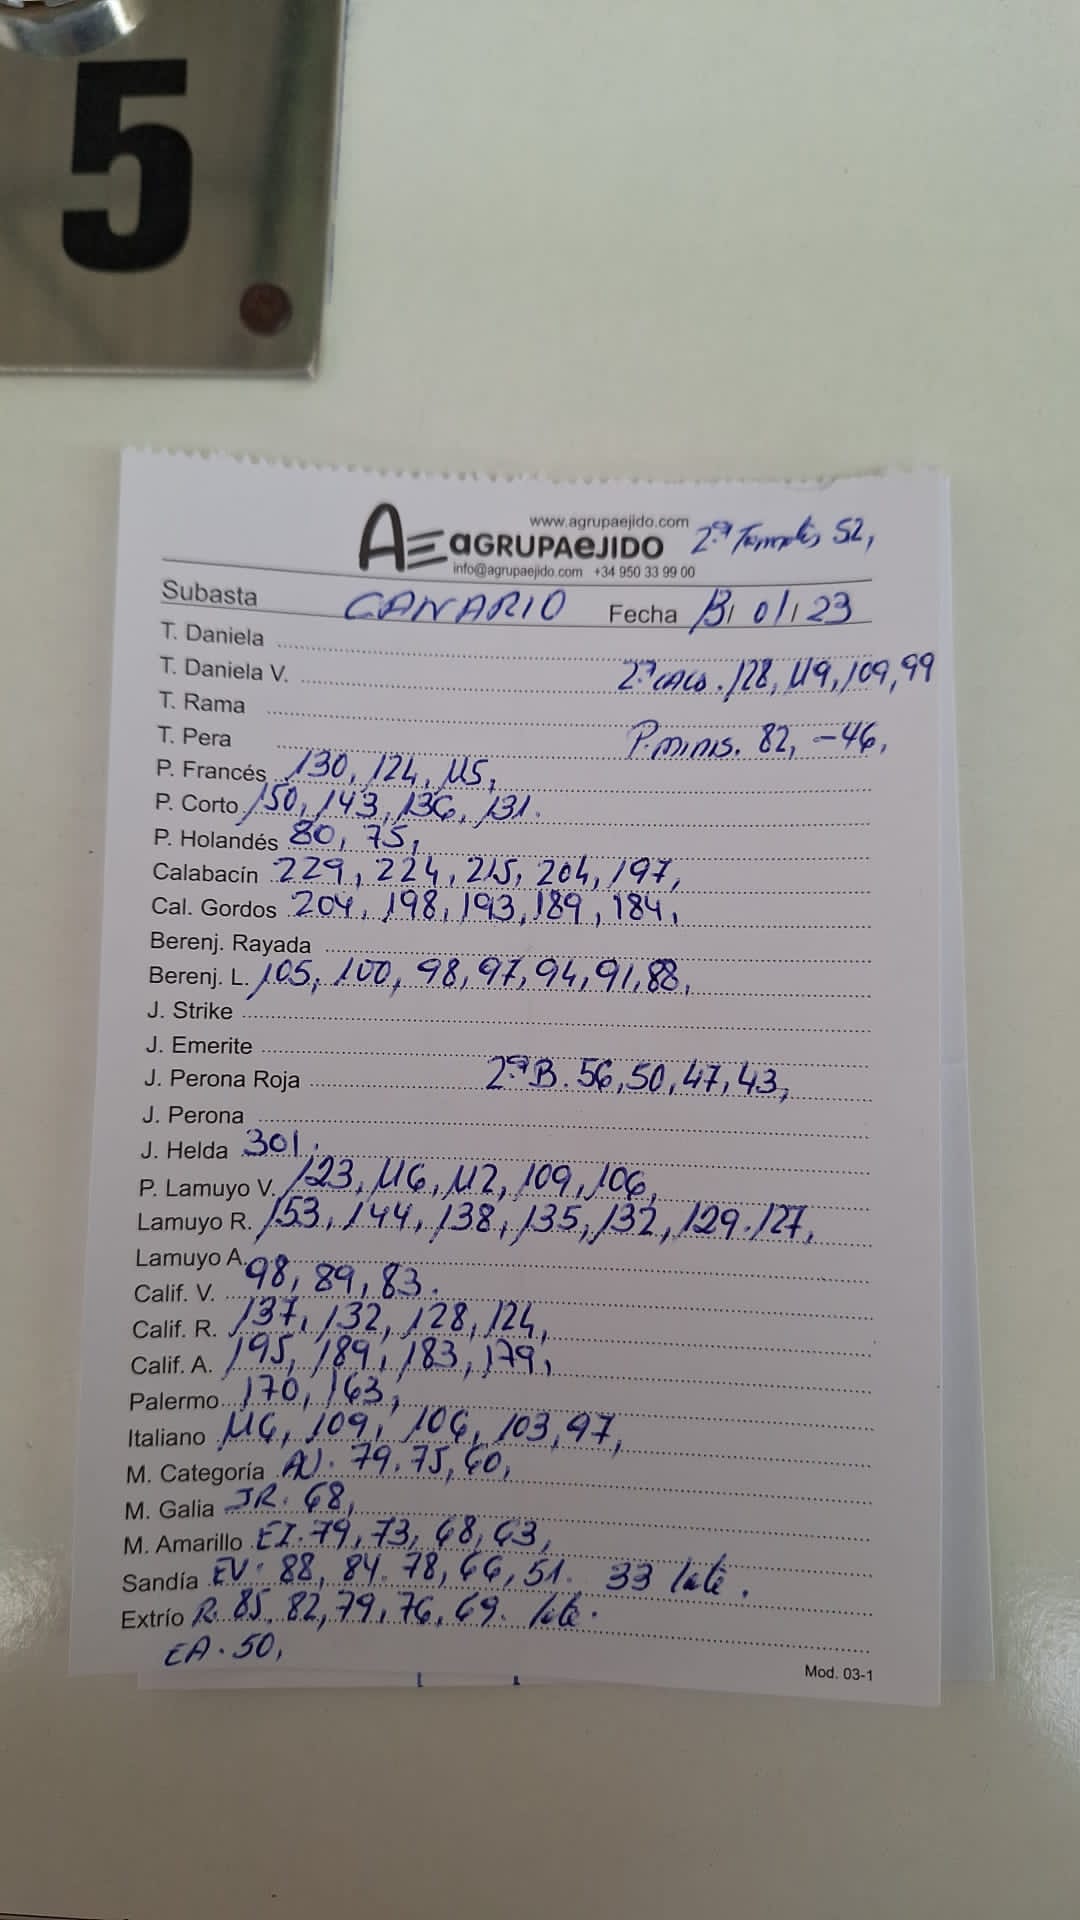 5
www.agrupaejido.com
AGRUPAEJIDO 2ª Tomates 52,
info@agrupaejido.com +34 950 33 99 00
Subasta CANARIO Fecha 13/ 01/ 23
T. Daniela
T. Daniela V. 2ª CALA. 128, 119, 109, 99
T. Rama
T. Pera P. minis. 82, -46,
P. Francés 130, 124, 115,
P. Corto 150, 143, 136, 131.
P. Holandés 80, 75,
Calabacín 229, 224, 215, 204, 197,
Cal. Gordos 204, 198, 193, 189, 184,
Berenj. Rayada
Berenj. L. 105, 100, 98, 97, 94, 91, 88,
J. Strike
J. Emerite
J. Perona Roja 2ª B. 56, 50, 47, 43,
J. Perona
J. Helda 301.
P. Lamuyo V. 123, 116, 112, 109, 106,
Lamuyo R. 153, 144, 138, 135, 132, 129. 127,
Lamuyo A.
Calif. V. 98, 89, 83.
Calif. R. 137, 132, 128, 124,
Calif. A. 195, 189, 183, 179,
Palermo 170, 163,
Italiano 116, 109, 106, 103, 97,
M. Categoría 79. 75, 60,
M. Galia JR. 68,
M. Amarillo EI. 79, 73, 68, 63,
Sandía EV. 88, 84. 78, 66, 51. 33 lote.
Extrío R. 85, 82, 79, 76, 69. lote.
EA. 50,
Mod. 03-1